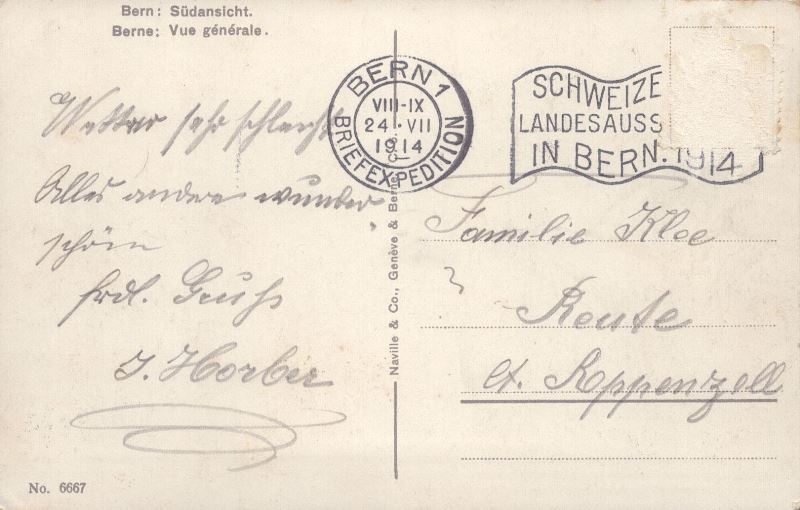 Bern: Südansicht.
Berne: Vue générale.
BERN 1
VIII-IX
24·VII
1914
BRIEFEXPEDITION
SCHWEIZE
LANDESAUSS
IN BERN. 1914
Wetter sehr schlecht
Alles andere wunder
schön
frdl. Gruß
J. Horber
Naville & Co., Genève & Berne
Familie Klee
Reute
Ct. Appenzell
No. 6667